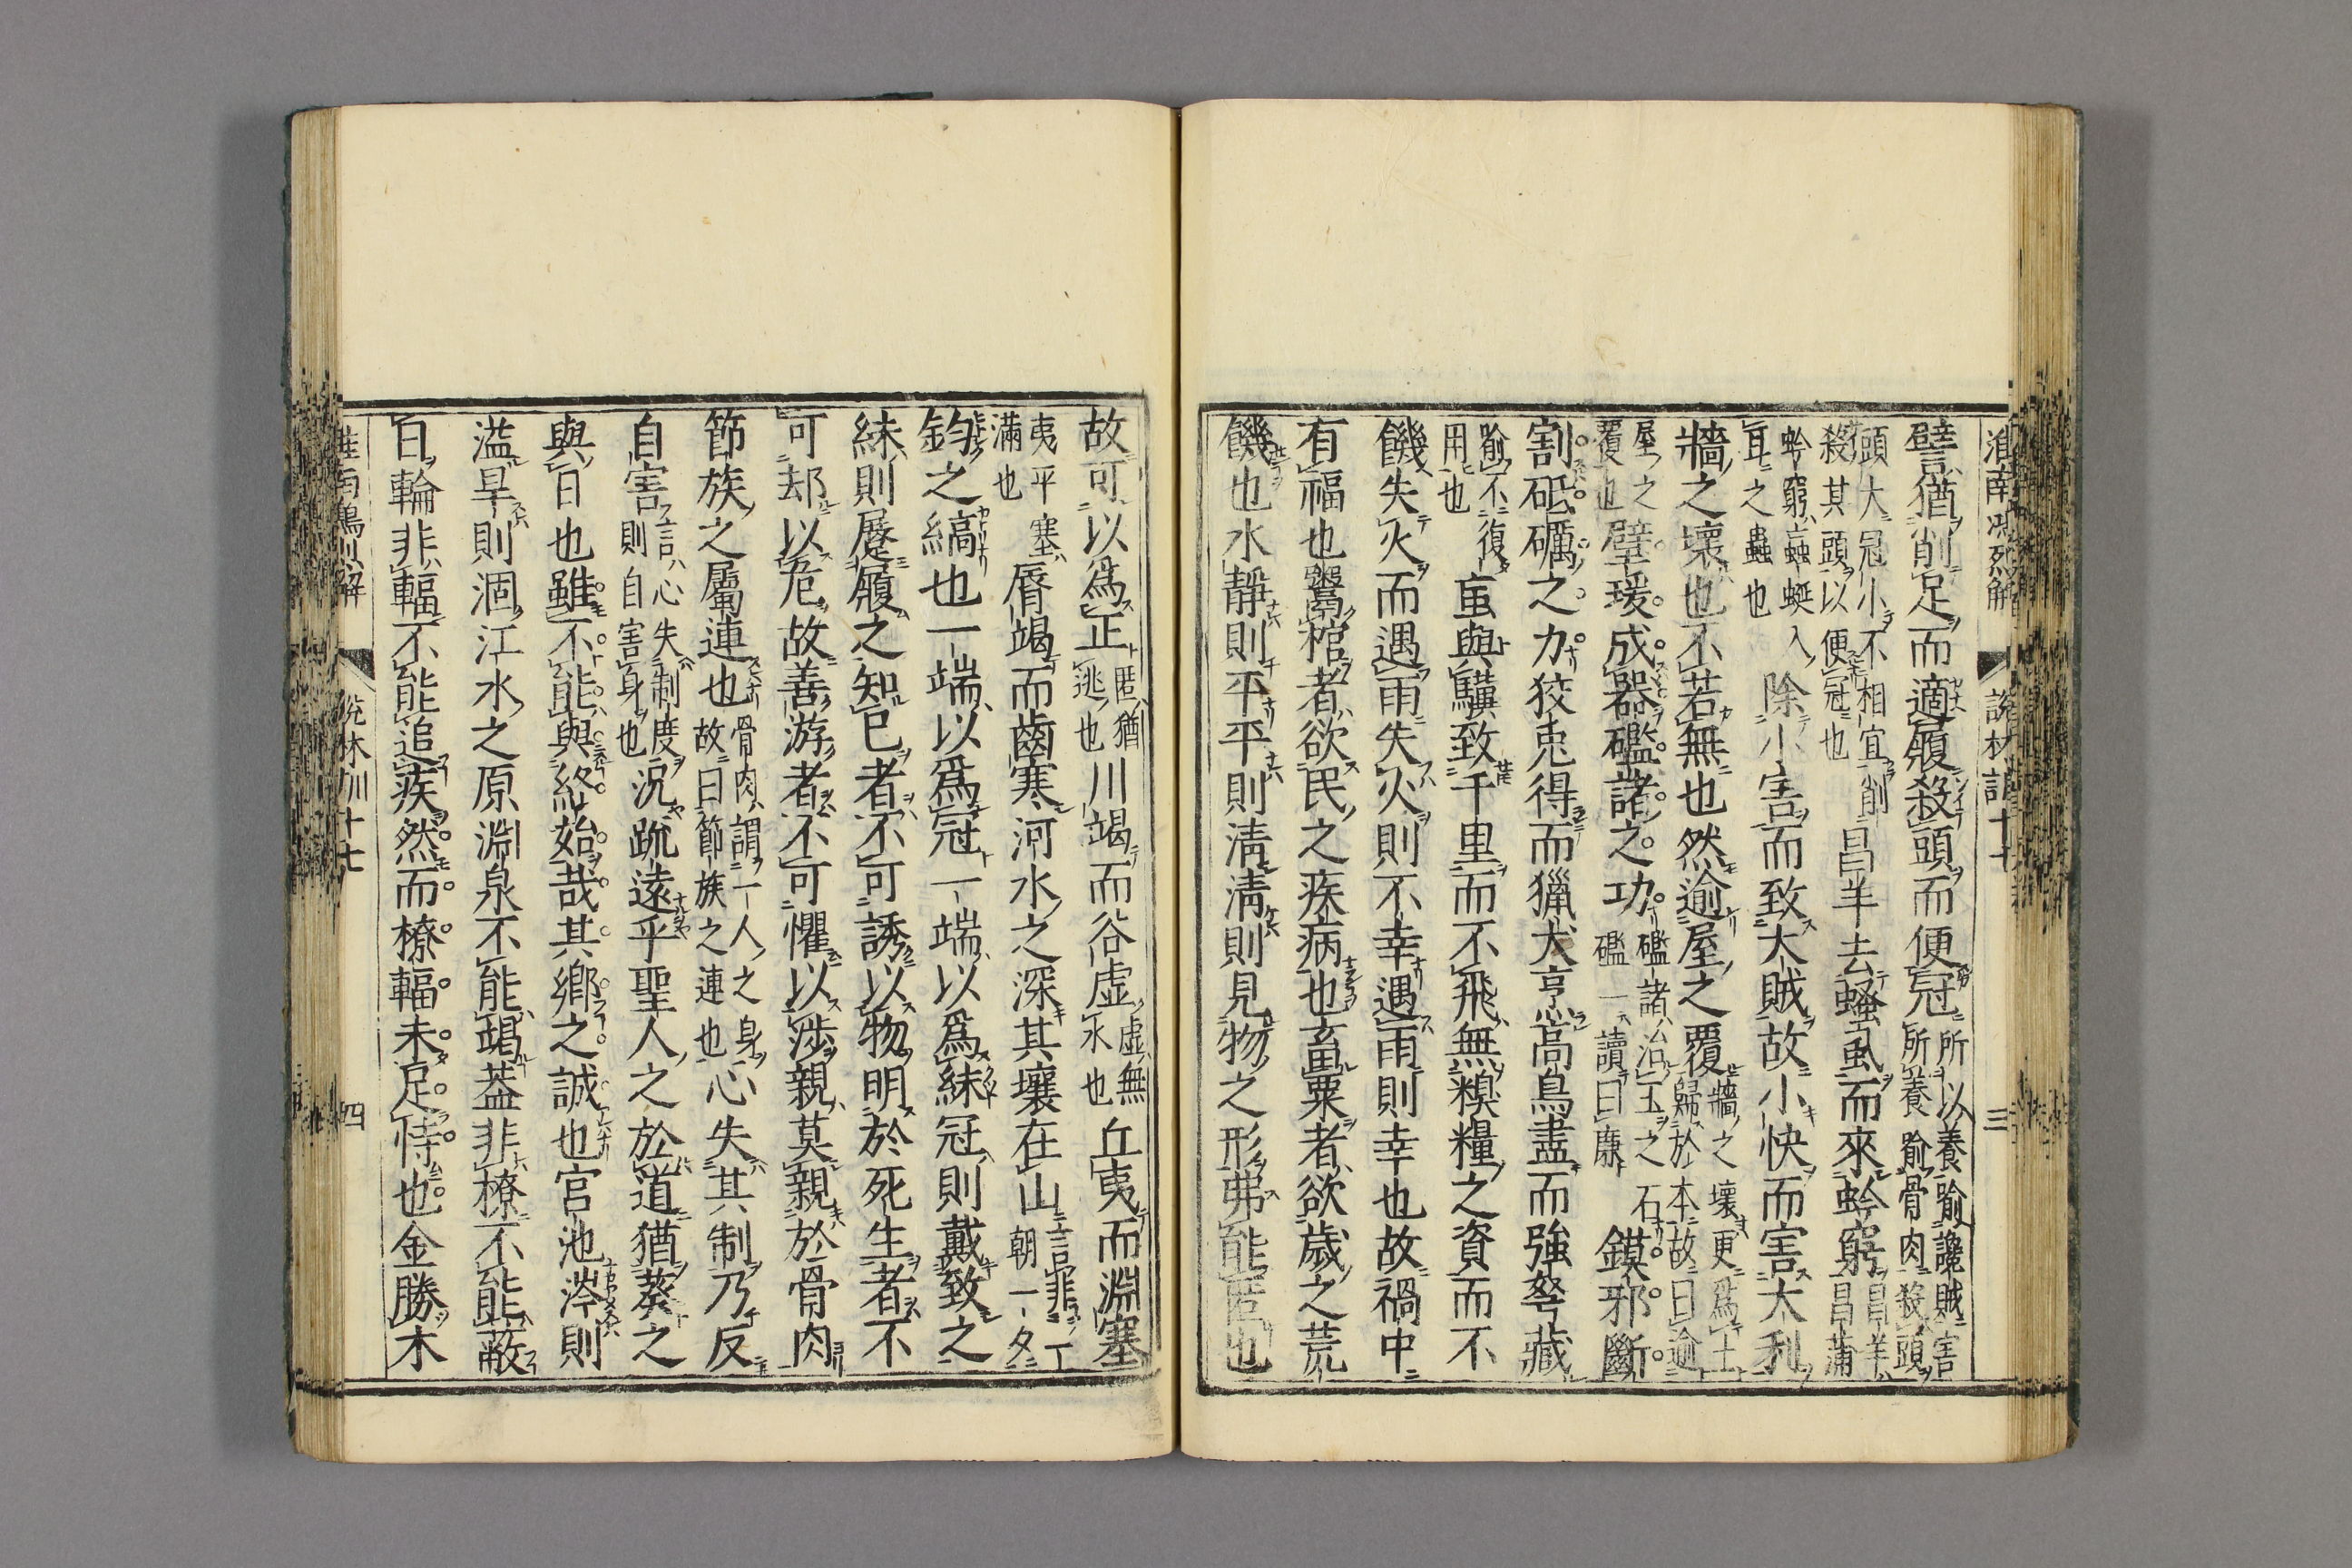 淮南鴻烈解 說林訓十七 三
譬猶削足而適履殺頭而便冠所以養喻讒賊害所養喻骨肉殺頭
頭大冠小不相宜削殺其頭以便冠也昌羊去蚤虱而來蛉窮昌羊昌蒲
蛉窮蝱蜒入耳之蟲也除小害而致大賊故小快而害大利
牆之壞也不若無也然逾屋之覆牆之壞更爲土歸於本故曰逾
屋之覆也璧瑗成器礛諸之功礛諸治玉之石礛一讀曰廉鏌邪斷
割砥礪之力狡兎得而獵犬烹高鳥盡而強弩藏
喻不復用也䖟與驥致千里而不飛無糗糧之資而不
饑失火而遇雨失火則不幸遇雨則幸也故禍中
有福也鬻棺者欲民之疾病也畜粟者欲歲之荒
饑也水靜則平平則淸淸則見物之形弗能匿也
故可以爲正匿猶逃也川竭而谷虚虚無水也丘夷而淵塞
夷平塞滿也脣竭而齒寒河水之深其壤在山言非一朝一夕
鈞之縞也一端以爲冠一端以爲絑冠則戴致之
絑則屨履之知已者不可誘以物明於死生者不
可却以危故善游者不可懼以涉親莫親於骨肉
節族之屬連也骨肉謂一人之身故曰節族之連也心失其制乃反
自害言心失制度則自害身也況䟽遠乎聖人之於道猶葵之
與日也雖不能與終始哉其鄉之誠也宮池涔則
溢旱則涸江水之原淵泉不能竭蓋非橑不能蔽
日輪非輻不能追疾然而橑輻未足恃也金勝木
說林訓十七 四